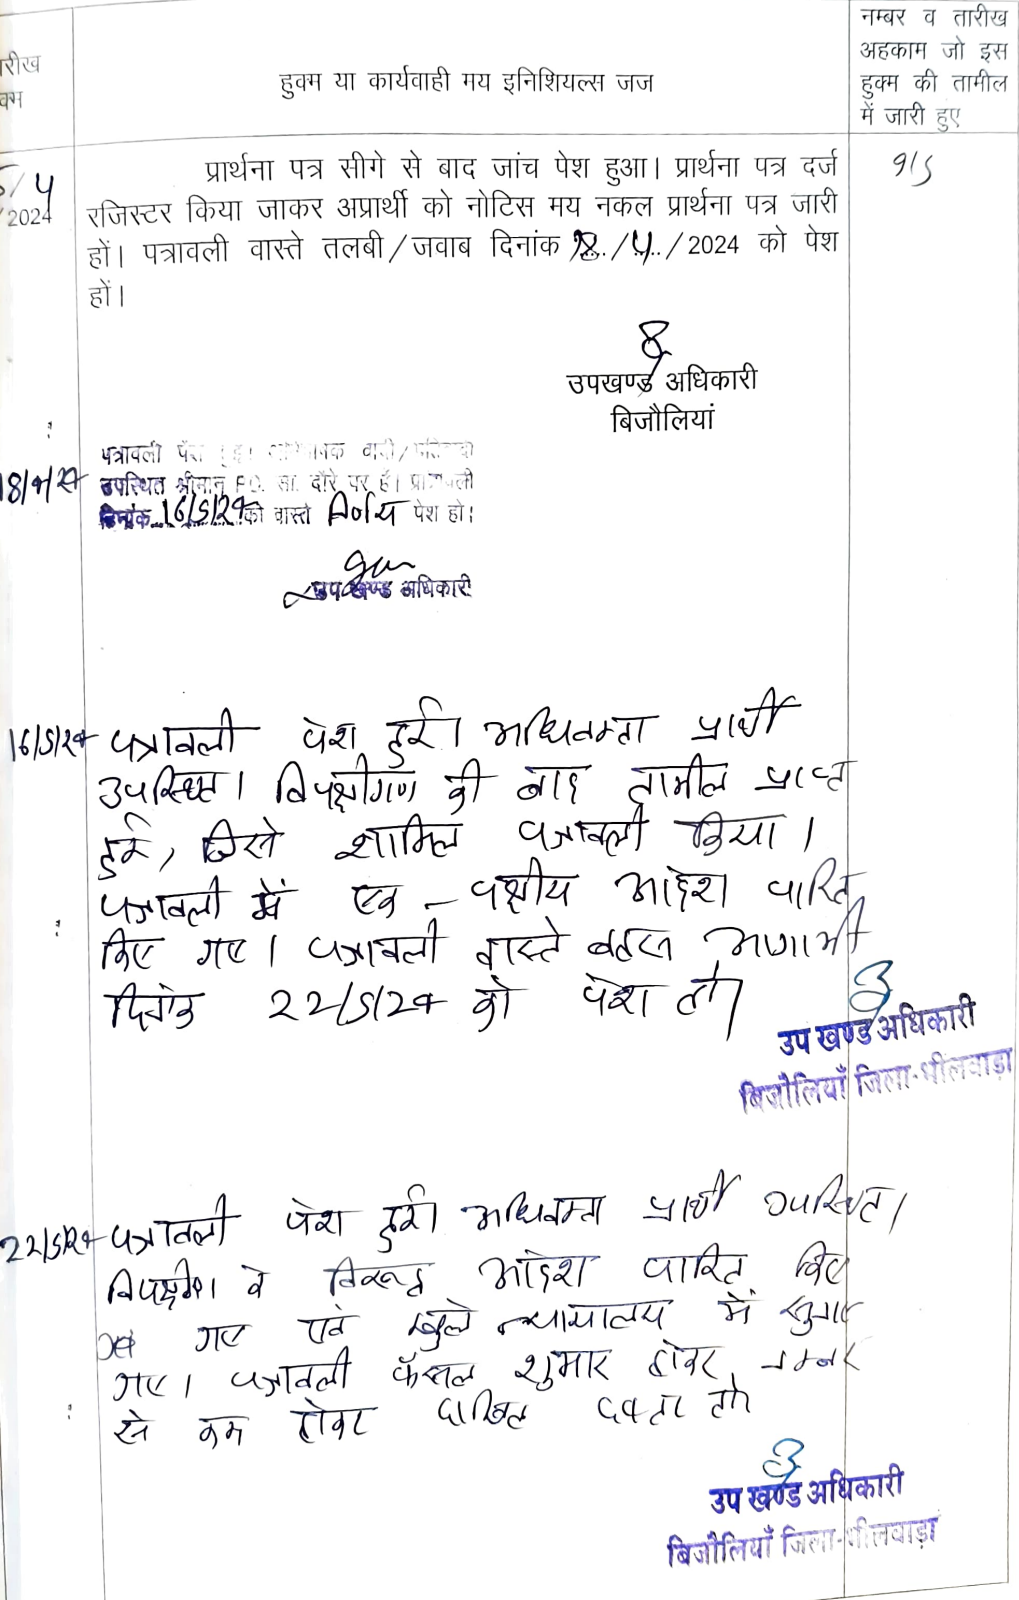 नम्बर व तारीख
अहकाम जो इस
हुक्म की तामील
में जारी हुए
रीख
क्म
हुक्म या कार्यवाही मय इनिशियल्स जज
/4
/2024
प्रार्थना पत्र सीगे से बाद जांच पेश हुआ। प्रार्थना पत्र दर्ज
रजिस्टर किया जाकर अप्रार्थी को नोटिस मय नकल प्रार्थना पत्र जारी
हों। पत्रावली वास्ते तलबी/जवाब दिनांक 18/4/2024 को पेश
हों।
उपखण्ड अधिकारी
बिजौलियां
18/4/24
पत्रावली पेश हुई। वादी/
उपस्थित श्रीमान् P.O. सा. दौरे पर हैं। पत्रावली
दिनांक 16/5/24 को वास्ते निर्णय पेश हो।
उप खण्ड अधिकारी
16/5/24 पत्रावली पेश हुई। अधिवक्ता प्रार्थी
उपस्थित। विपक्षीगण की बाद तामील प्राप्त
हुई, जिसे शामिल पत्रावली किया।
पत्रावली में एक-पक्षीय आदेश पारित
किए गए। पत्रावली वास्ते बहस आगामी
दिनांक 22/5/24 को पेश हो।
उप खण्ड अधिकारी
बिजौलियाँ जिला-भीलवाड़ा
22/5/24 पत्रावली पेश हुई। अधिवक्ता प्रार्थी उपस्थित।
के विरूद्ध आदेश पारित किए
गए एवं खुले न्यायालय में सुनाए
गए। पत्रावली फैसल शुमार होकर नम्बर
से कम होकर दाखिल दफ्तर हो।
उप खण्ड अधिकारी
बिजौलियाँ जिला-भीलवाड़ा